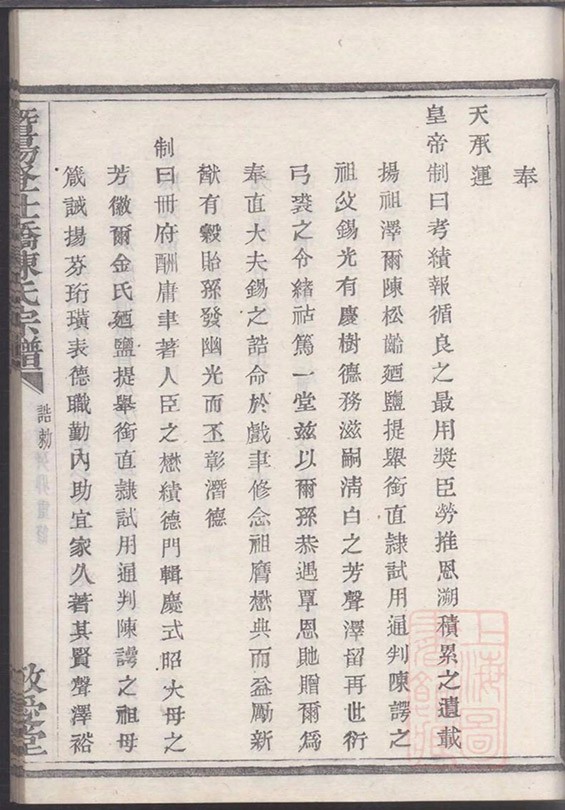 奉
天承運
皇帝制曰考績報循良之最用獎臣勞推恩溯積累之遺載
揚祖澤爾陳松齡廼鹽提舉銜直隸試用通判陳諤之
祖父錫光有慶樹德務滋嗣清白之芳聲澤留再世衍
弓裘之令緒祜篤一堂茲以爾孫恭遇覃恩貤贈爾為
奉直大夫錫之誥命於戲聿修念祖膺懋典而益勵新
猷有穀貽孫發幽光而丕彰潛德
制曰冊府酬庸聿著人臣之懋績德門輯慶式昭大母之
芳徽爾金氏廼鹽提舉銜直隸試用通判陳諤之祖母
箴誠揚芬珩璜表德職勤內助宜家久著其賢聲澤裕
陳氏宗譜
誥勅
敬愛堂
上海圖